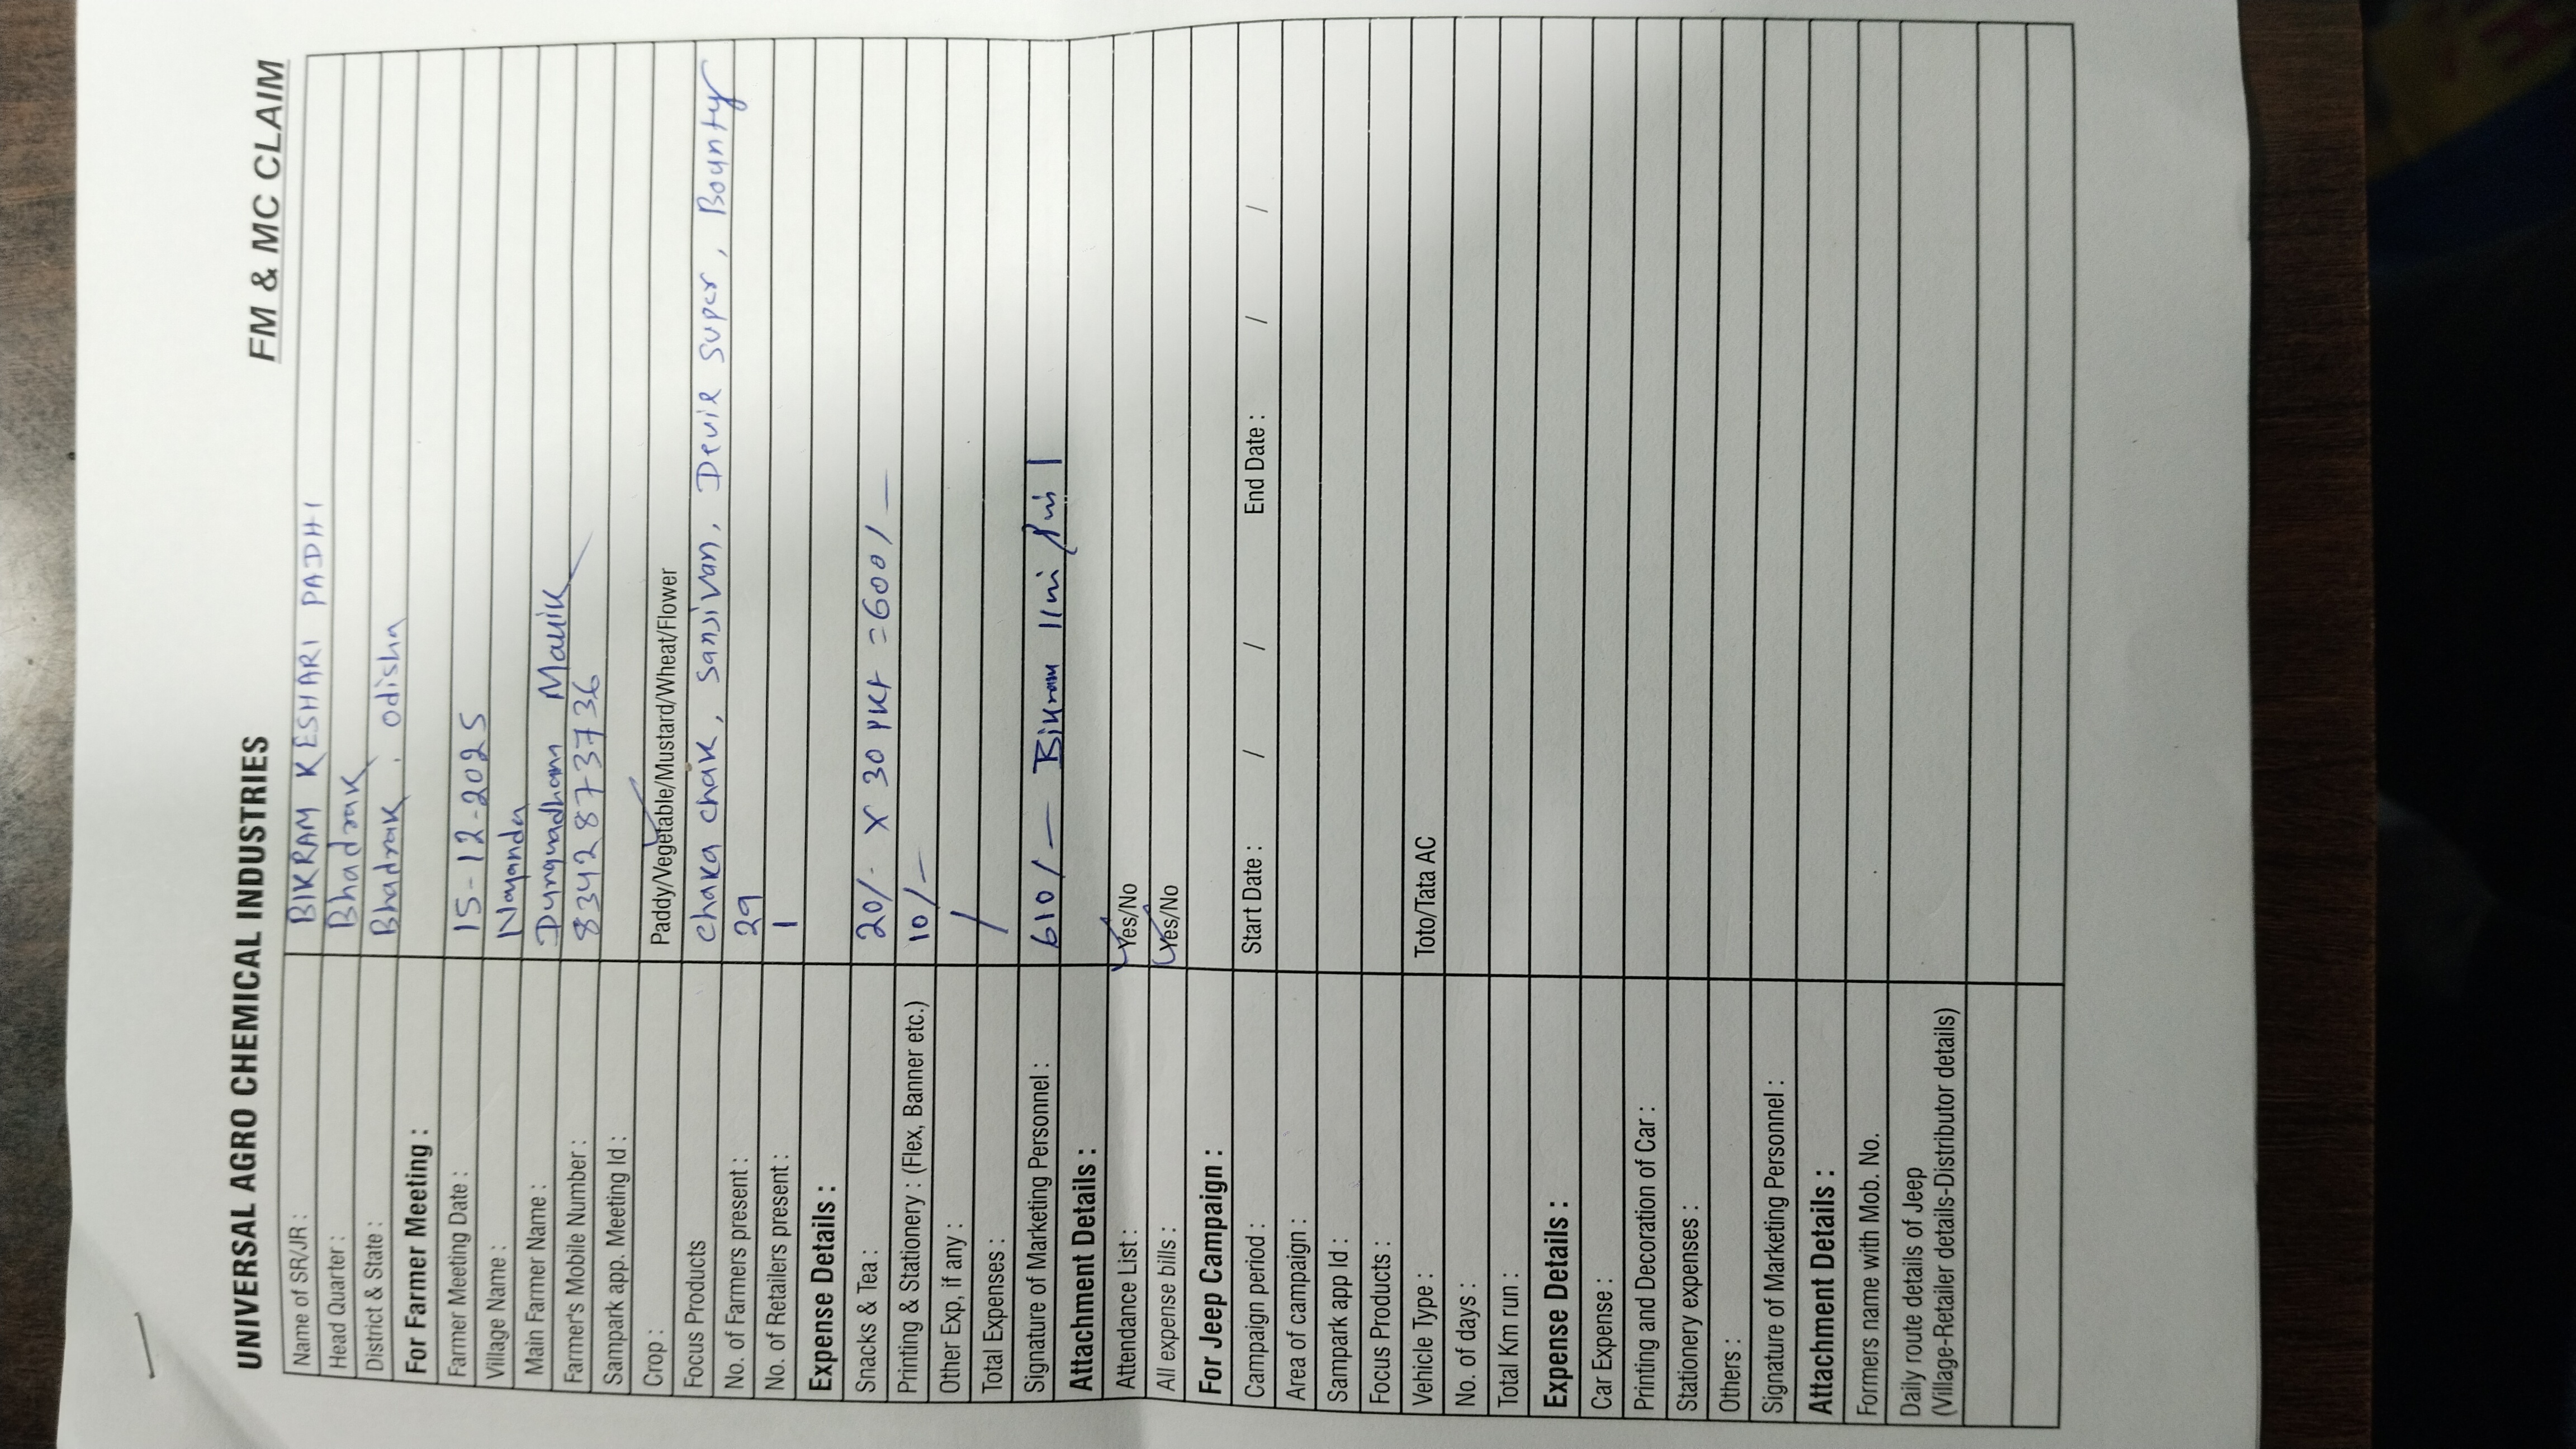 UNIVERSAL AGRO CHEMICAL INDUSTRIES FM & MC CLAIM
Name of SR/JR : BIKRAM KESHARI PADHI
Head Quarter : Bhadrak
District & State : Bhadrak, odisha
For Farmer Meeting :
Farmer Meeting Date : 15-12-2025
Village Name : Nayananda
Main Farmer Name : Mallik
Farmer's Mobile Number : 8342873736
Sampark app. Meeting Id :
Crop : Paddy/Vegetable/Mustard/Wheat/Flower
Focus Products chaka chak, Sansivan, Devil Super, Bounty
No. of Farmers present : 29
No. of Retailers present : 1
Expense Details :
Snacks & Tea : 20/- x 30 PKt = 600/-
Printing & Stationery : (Flex, Banner etc.) 10/-
Other Exp, if any : /
Total Expenses :
Signature of Marketing Personnel : 610/- Bikram
Attachment Details :
Attendance List : Yes/No
All expense bills : Yes/No
For Jeep Campaign :
Campaign period : Start Date : / / End Date : / /
Area of campaign :
Sampark app Id :
Focus Products :
Vehicle Type : Toto/Tata AC
No. of days :
Total Km run :
Expense Details :
Car Expense :
Printing and Decoration of Car :
Stationery expenses :
Others :
Signature of Marketing Personnel :
Attachment Details :
Formers name with Mob. No.
Daily route details of Jeep
(Village-Retailer details-Distributor details)